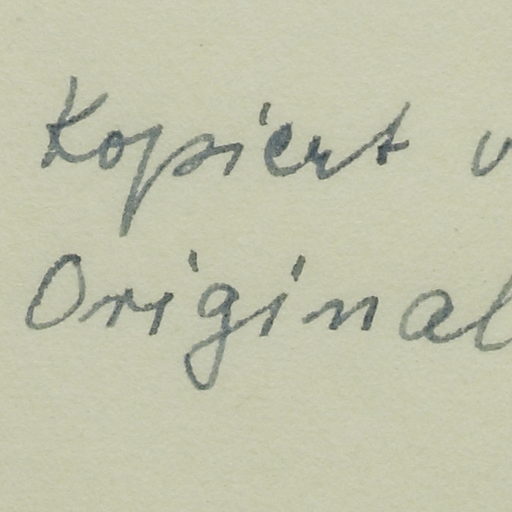 Kopiert v
Original